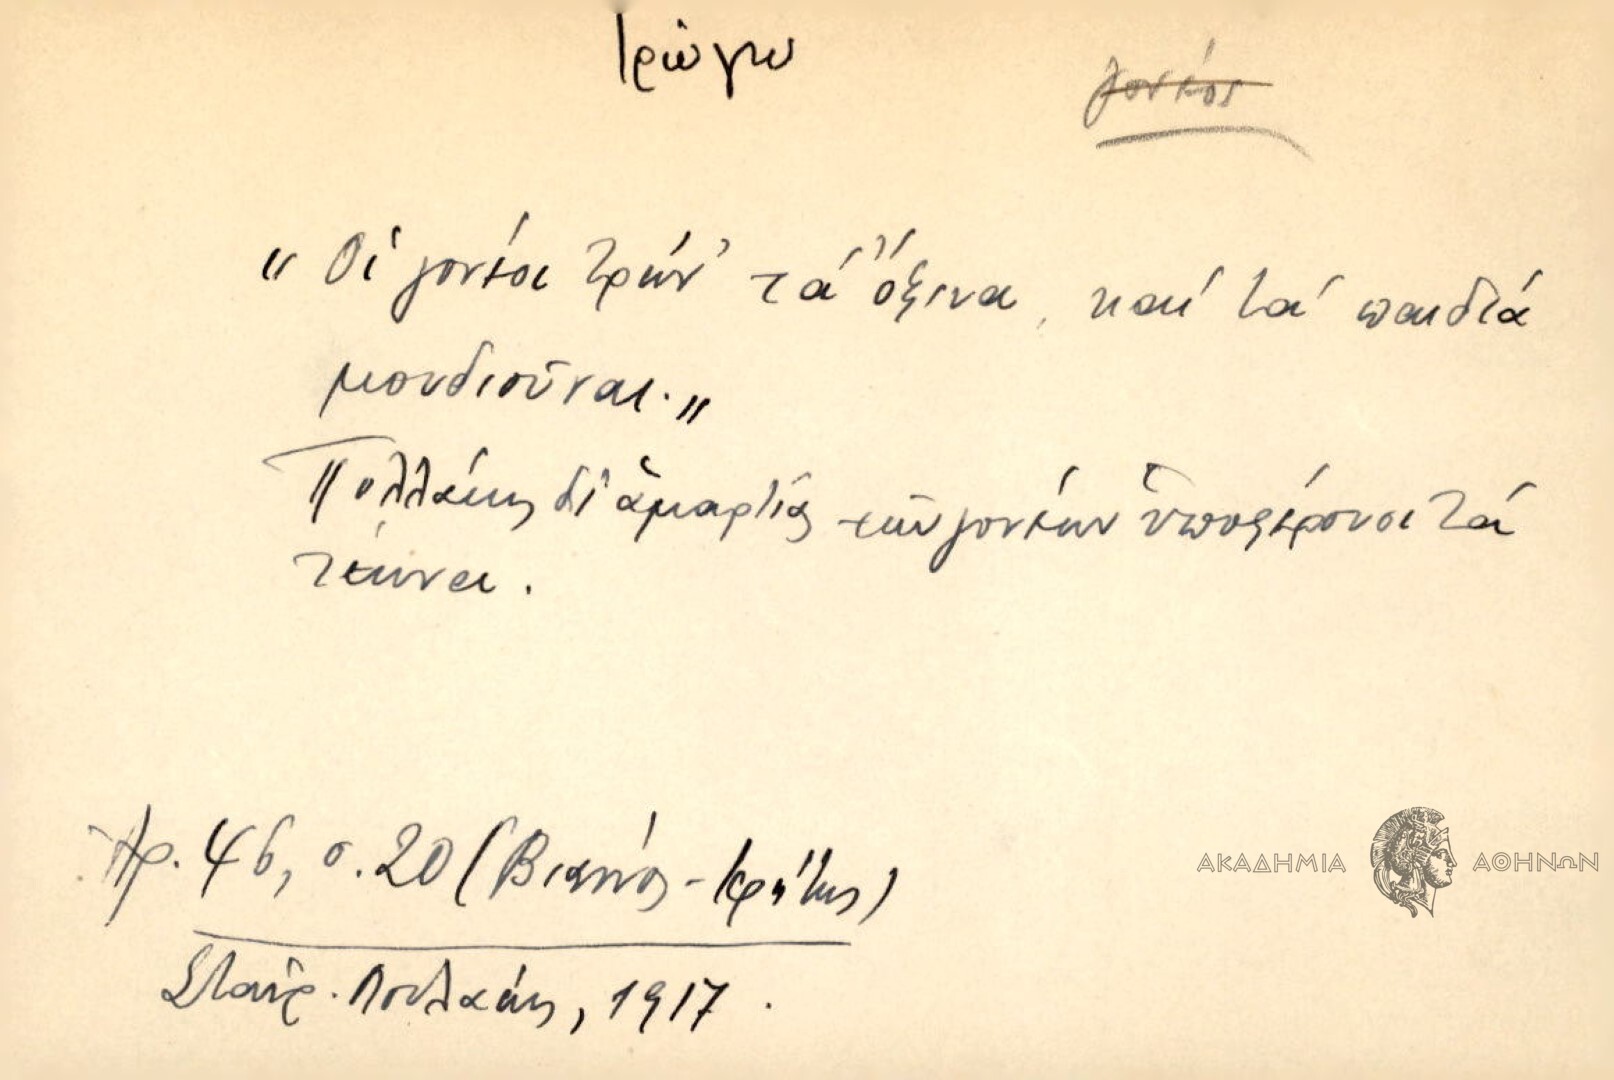 Τρώγω
γονέος
"Οἱ γονέοι τρών' τὰ ὄξινα, καὶ τὰ παιδιά
μουδιοῦναι."
Πολλάκις δι' ἁμαρτίας τῶν γονέων ὑποφέρουσι τὰ
τέκνα.
Ἀρ. 46, σ. 20 (Βιάννος - Κρήτης)
Σταῦρ. Πουλάκης, 1917.
ΑΚΑΔΗΜΙΑ ΑΘΗΝΩΝ